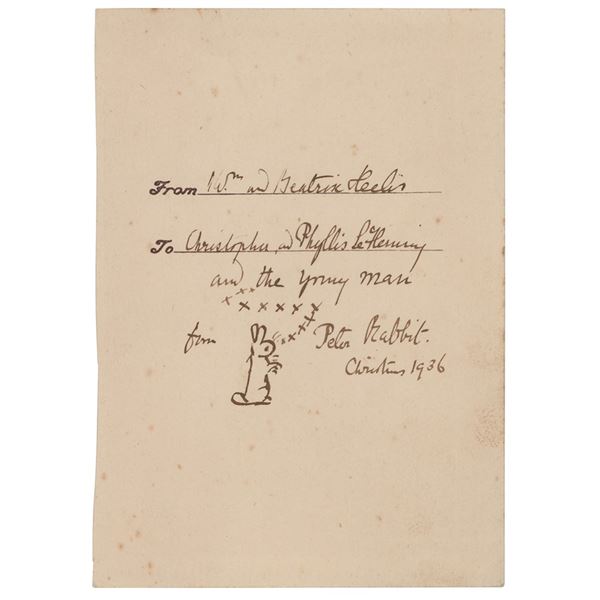 From Wm and Beatrix Heelis
To Christopher and Phyllis Le Fleming
and the young man
x x x
x x x x x x
from x x x x Peter Rabbit.
Christmas 1936